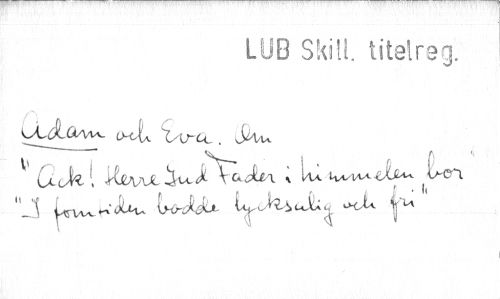 LUB Skill. titelreg.
Adam och Eva. Om
"Ack! Herre Gud Fader i himmelen bor"
"I forntiden bodde lycksalig och fri"